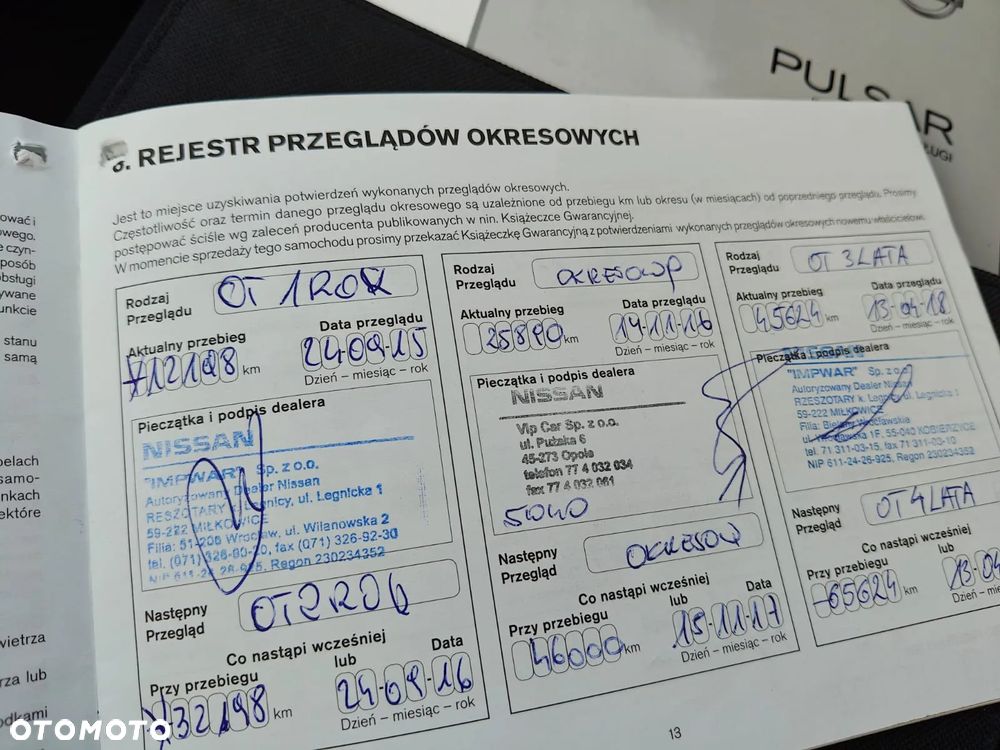 PULSAR
6. REJESTR PRZEGLĄDÓW OKRESOWYCH
Jest to miejsce uzyskiwania potwierdzeń wykonanych przeglądów okresowych.
Częstotliwość oraz termin danego przeglądu okresowego są uzależnione od przebiegu km lub okresu (w miesiącach) od poprzedniego przeglądu. Prosimy
postępować ściśle wg zaleceń producenta publikowanych w nin. Książeczce Gwarancyjnej.
W momencie sprzedaży tego samochodu prosimy przekazać Książeczkę Gwarancyjną z potwierdzeniami wykonanych przeglądów okresowych nowemu właścicielowi.
Rodzaj
Przeglądu
OT 1 ROK
Aktualny przebieg
Data przeglądu
12198 km
24-09-15
Dzień – miesiąc – rok
Pieczątka i podpis dealera
NISSAN
"IMPWAR" Sp. z o.o.
Autoryzowany Dealer Nissan
RESZOTARY k. Legnicy, ul. Legnicka 1
59-222 MIŁKOWICE
Filia: 51-206 Wrocław, ul. Wilanowska 2
tel. (071) 326-90-20, fax (071) 326-92-30
NIP 611-24-26-925, Regon 230234352
Następny
Przegląd
OT 2 ROK
Co nastąpi wcześniej
Przy przebiegu
lub
Data
32198 km
24-09-16
Dzień – miesiąc – rok
Rodzaj
Przeglądu
OKRESOWY
Aktualny przebieg
Data przeglądu
25890 km
14-11-16
Dzień – miesiąc – rok
Pieczątka i podpis dealera
NISSAN
Vip Car Sp. z o.o.
ul. Pużaka 6
45-273 Opole
telefon 77 4 032 034
fax 77 4 032 061
Następny
Przegląd
OKRESOW
Co nastąpi wcześniej
Przy przebiegu
lub
Data
46000 km
15-11-17
Dzień – miesiąc – rok
Rodzaj
Przeglądu
OT 3 LATA
Aktualny przebieg
Data przeglądu
45624 km
13-04-18
Dzień – miesiąc – rok
Pieczątka i podpis dealera
"IMPWAR" Sp. z o.o.
Autoryzowany Dealer Nissan
RZESZOTARY k. Legnicy, ul. Legnicka 1
59-222 MIŁKOWICE
Filia: Bielany Wrocławskie
ul. Wrocławska 1F, 55-040 KOBIERZYCE
tel. 71 311-03-15, fax 71 311-03-10
NIP 611-24-26-925, Regon 230234352
Następny
Przegląd
OT 4 LATA
Co nastąpi wcześniej
Przy przebiegu
lub
65624 km
13-04
Dzień – mie
13
stanu
samą
sposób
obsługi
unkcie
pelach
samo-
unkach
ektóre
wietrza
rza lub
odkami
OTOMOTO